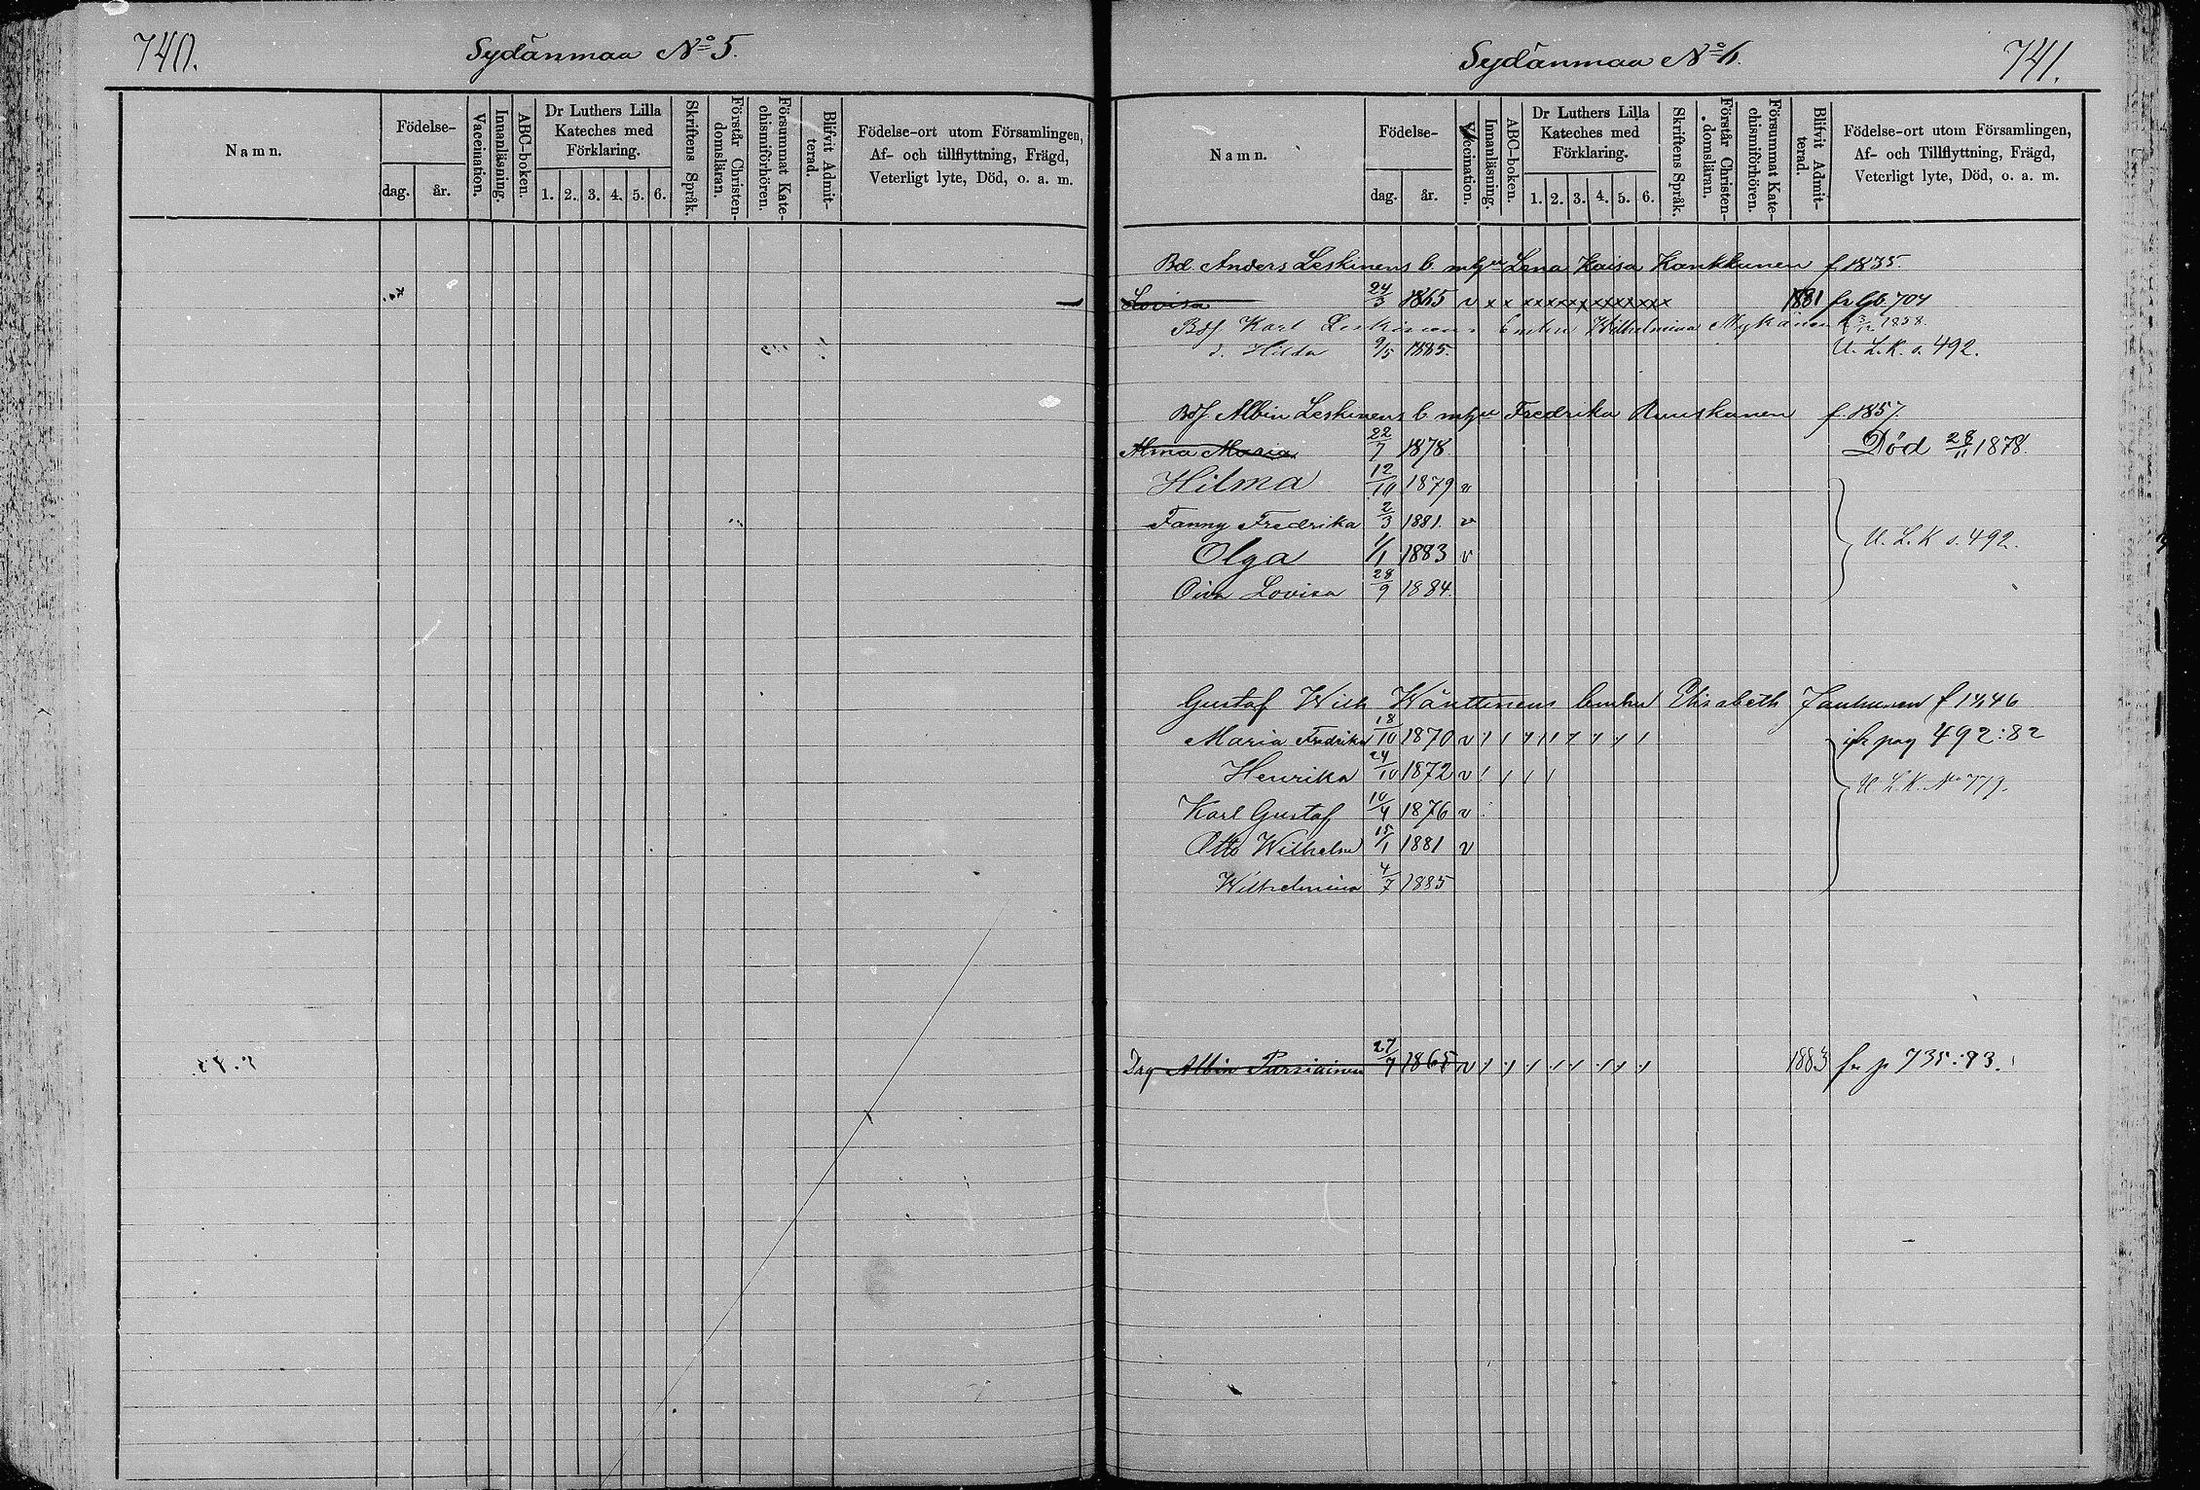 740.
Sydänmaa No 5.
Namn.
Födelse-
dag. år.
Vaccination.
Innanläsning.
ABC-boken.
Dr Luthers Lilla
Kateches med
Förklaring.
1. 2. 3. 4. 5. 6.
Skriftens Språk.
Förstår Christen-
domsläran.
Försummat Kate-
chismiförhören.
Blifvit Admit-
terad.
Födelse-ort utom Församlingen,
Af- och tillflyttning, Frägd,
Veterligt lyte, Död, o. a. m.
Sydänmaa No 6.
741.
Namn.
Födelse-
dag. år.
Vaccination.
Innanläsning.
ABC-boken.
Dr Luthers Lilla
Kateches med
Förklaring.
1. 2. 3. 4. 5. 6.
Skriftens Språk.
Förstår Christen-
domsläran.
Försummat Kate-
chismiförhören.
Blifvit Admit-
terad.
Födelse-ort utom Församlingen,
Af- och Tillflyttning, Frägd,
Veterligt lyte, Död, o. a. m.
Bd. Anders Leskinens b. m hu Lena Kaisa Kankkunen f. 1835.
Lovisa 24/3 1865 v x x x x x x x x x x x x x x 1881 fr Gb. 704
Bdf Karl Leskinens b m hu Wilhelmina Mykänen f. 3/12 1858.
d. Hilda 9/5 1885. U. L. K. s. 492.
Bdf Albin Leskinens b. m hu Fredrika Ruuskanen f. 1857.
Alma Maria 22/7 1878 Död 28/11 1878.
Hilma 12/10 1879 v
Fanny Fredrika 2/3 1881. v
U. L. K s. 492.
Olga 1/1 1883 v
Oiva Lovisa 28/9 1884.
Gustaf Wilh Wänttinens b m hu Elisabeth Janhunen f 1846
Maria Fredrika 18/10 1870 v / / / / / / / / / pag 492:82
Henrika 24/10 1872 v / / / / U. L. K. No 779.
Karl Gustaf 10/4 1876 v
Otto Wilhelm 15/1 1881 v
Wilhelmina 4/7 1885
Drg Albin Pursiainen 27/7 1865 v / / / / / / / / 1883 fr p 735:83.